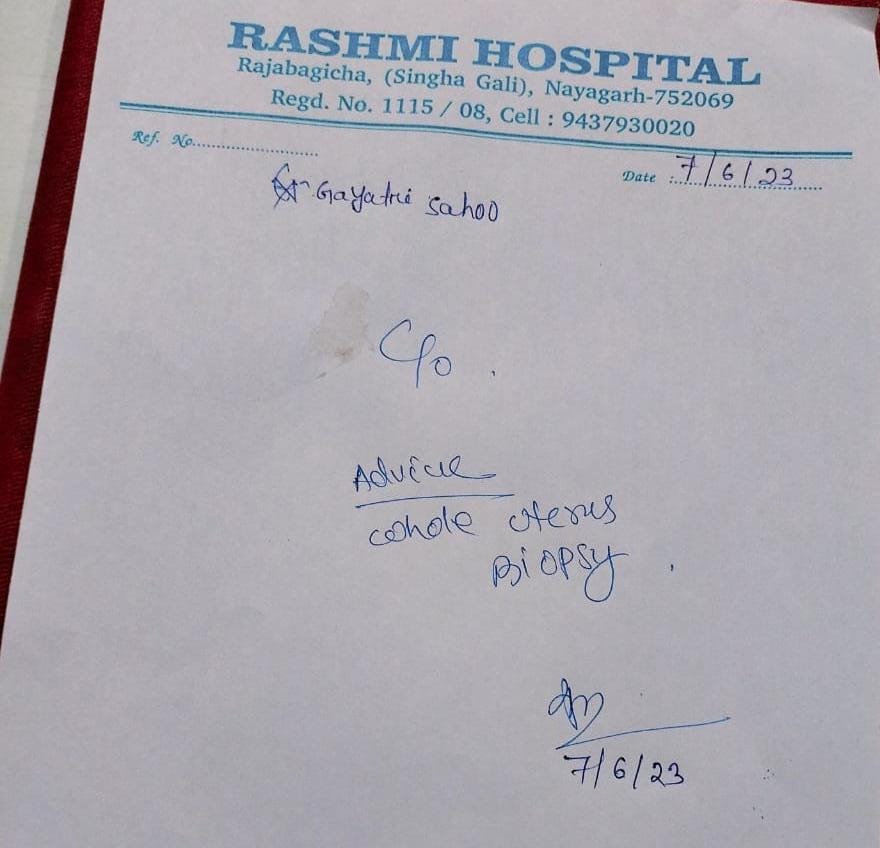 RASHMI HOSPITAL
Rajabagicha, (Singha Gali), Nayagarh-752069
Regd. No. 1115 / 08, Cell : 9437930020
Ref. No.
Date : 7/6/23
Gayatri Sahoo
C/o
Advice
whole uterus
Biopsy
7/6/23